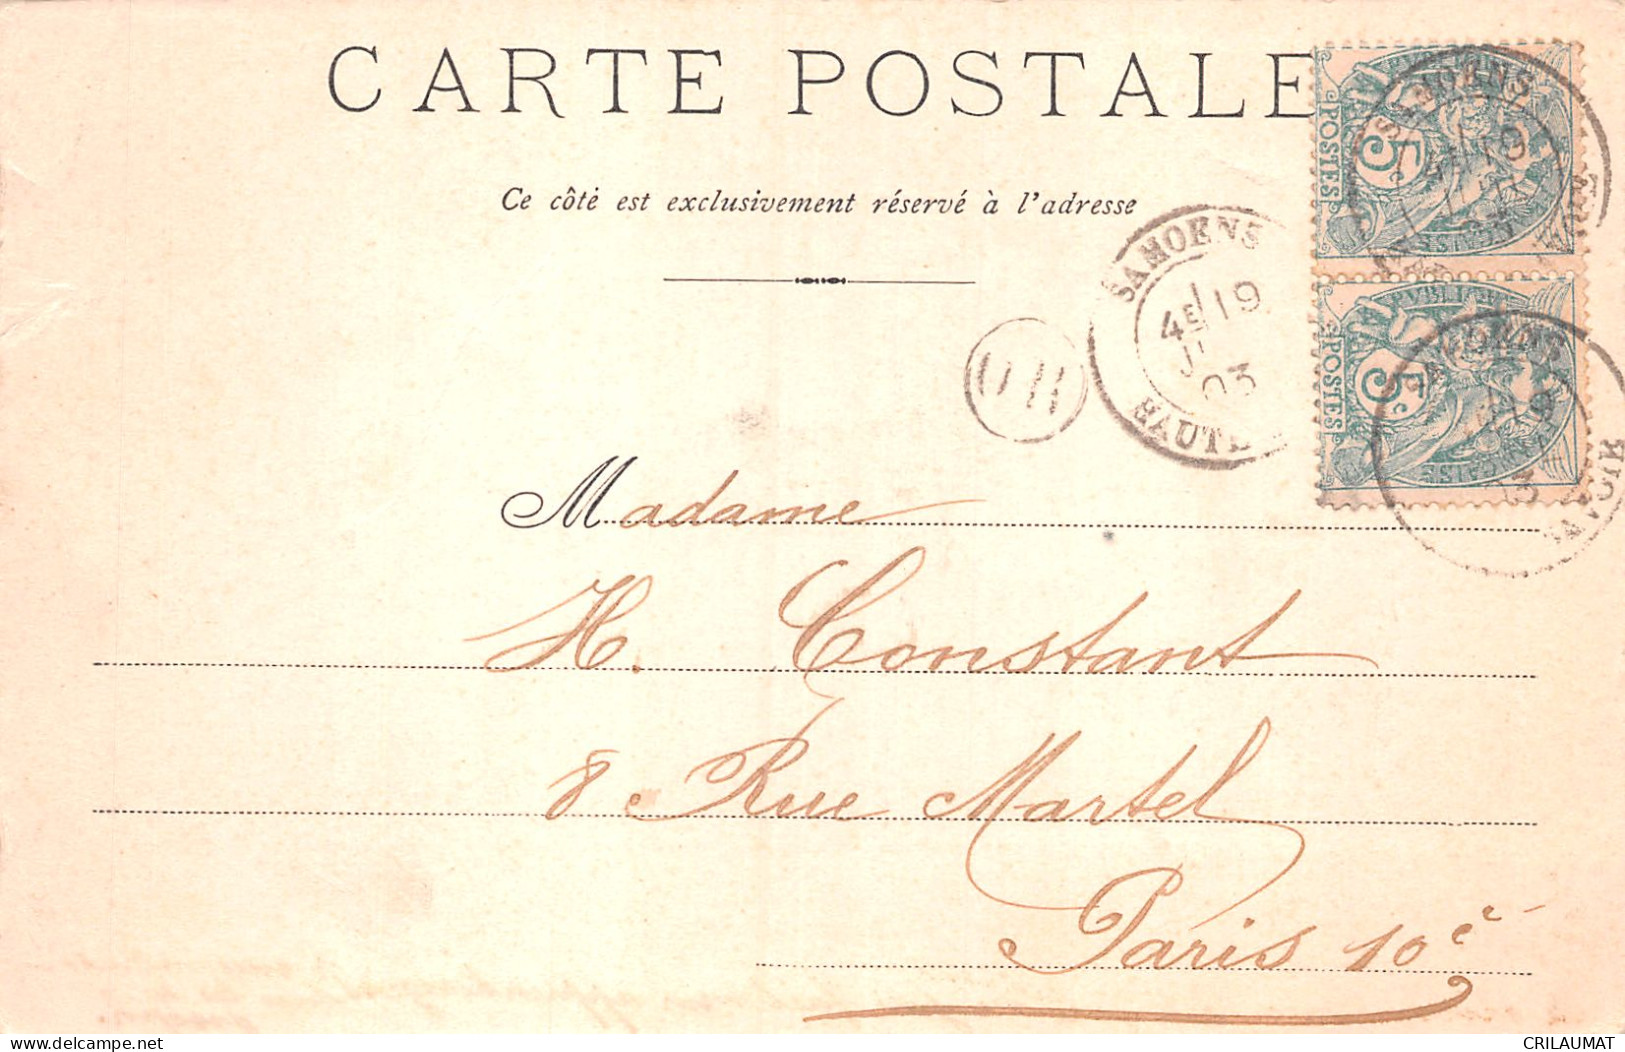 CARTE POSTALE
Ce côté est exclusivement réservé à l'adresse
SAMOENS
4E 19
03
HAUTE
POSTES 5c
POSTES 5c
Madame
H. Constant
8 Rue Martel
Paris 10e
delcampe.net
CRILAUMAT